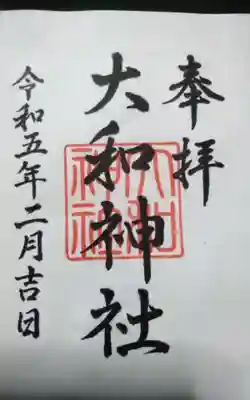 奉拝
大和神社
令和五年二月吉日
大和神社